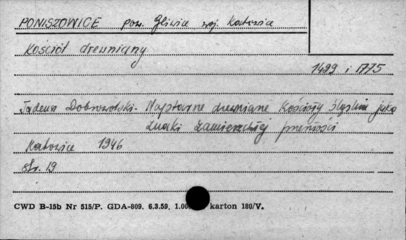 PONISZOWICE pow. Gliwice woj. Katowice
Kościół drewniany
1499 i 1775
Tadeusz Dobrowolski. Najstarsze drewniane kościoły śląskie jako
znaki zamierzchłej przeszłości
Katowice 1946
Str. 19
CWD B-15b Nr 515/P. GDA-809. 6.3.59, 1.00 karton 180/V.